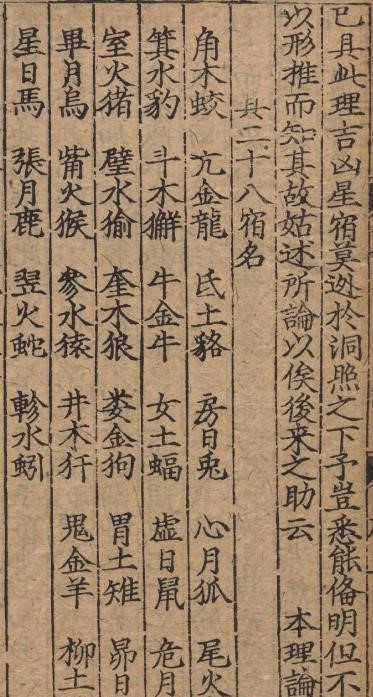 已具此理吉凶星宿莫逃於洞照之下予豈悉能俻明但不
以形推而知其故姑述所論以俟後来之助云 本理論
其二十八宿名
角木蛟 亢金龍 氐土貉 房日兎 心月狐 尾火
箕水豹 斗木獬 牛金牛 女土蝠 虛日鼠 危月
室火猪 壁水㺄 奎木狼 娄金狗 胃土雉 昴日
畢月烏 觜火猴 参水猿 井木犴 鬼金羊 柳土
星日馬 張月鹿 翌火蛇 軫水蚓